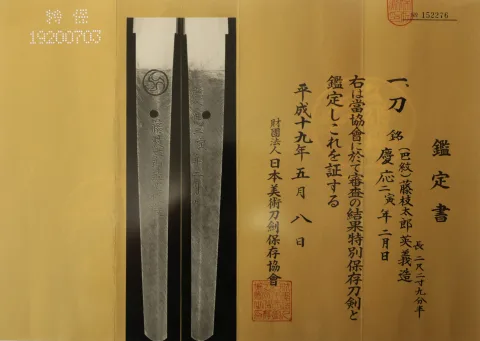 特保
19200703
№ 152276
鑑定書
一、刀 銘 (巴紋)藤枝太郎英義造
慶応二寅年二月日
長二尺二寸九分半
右は當協會に於て審査の結果特別保存刀劍と
鑑定しこれを証する
平成十九年五月八日
財團法人日本美術刀劍保存協會